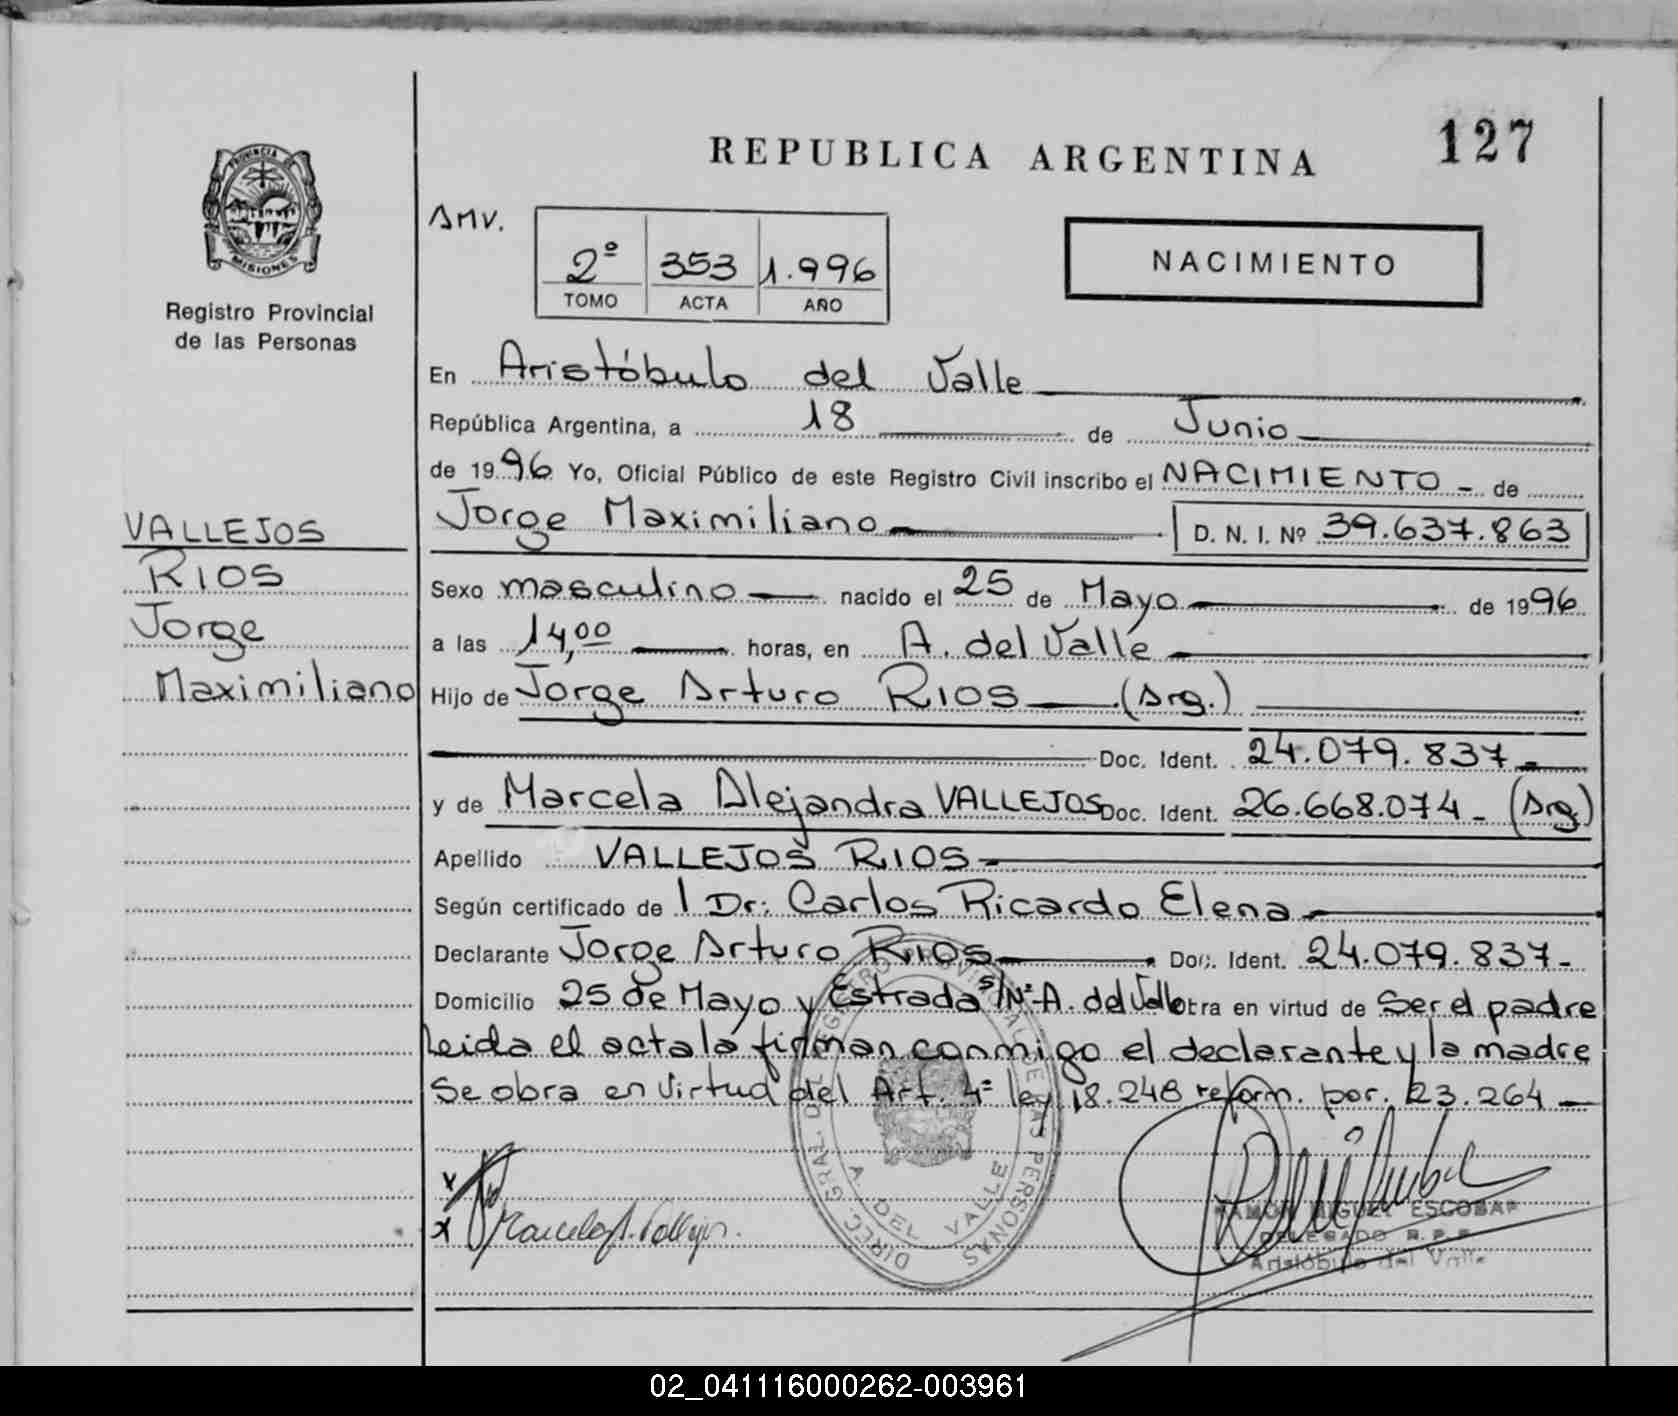 127
REPUBLICA ARGENTINA
PROVINCIA DE
MISIONES
Registro Provincial
de las Personas
AMV.
2º 353 1.996
TOMO ACTA AÑO
NACIMIENTO
En Aristóbulo del Valle
República Argentina, a 18 de Junio
de 1996 Yo, Oficial Público de este Registro Civil inscribo el NACIMIENTO - de
Jorge Maximiliano D. N. I. Nº 39.637.863
VALLEJOS
RIOS
Jorge
Maximiliano
Sexo masculino nacido el 25 de Mayo de 1996
a las 14,00 horas, en A. del Valle
Hijo de Jorge Arturo RIOS (Arg.)
Doc. Ident. 24.079.837-
y de Marcela Alejandra VALLEJOS Doc. Ident. 26.668.074- (Arg)
Apellido VALLEJOS RIOS-
Según certificado de l Dr: Carlos Ricardo Elena
Declarante Jorge Arturo RIOS Doc. Ident. 24.079.837-
Domicilio 25 de Mayo y Estrada S/Nº-A. del Valle obra en virtud de Ser el padre
Leida el acta la firman conmigo el declarante y la madre
Se obra en Virtud del Art. 4º ley 18.248 reform. por. 23.264 —
DIREC. GRAL. DEL REGISTRO PROVINCIAL DE LAS PERSONAS
A. DEL VALLE
x
x Marcela A. Vallejos.
RAMON MIGUEL ESCOBAR
DELEGADO R.P.P.
Aristóbulo del Valle
02_041116000262-003961